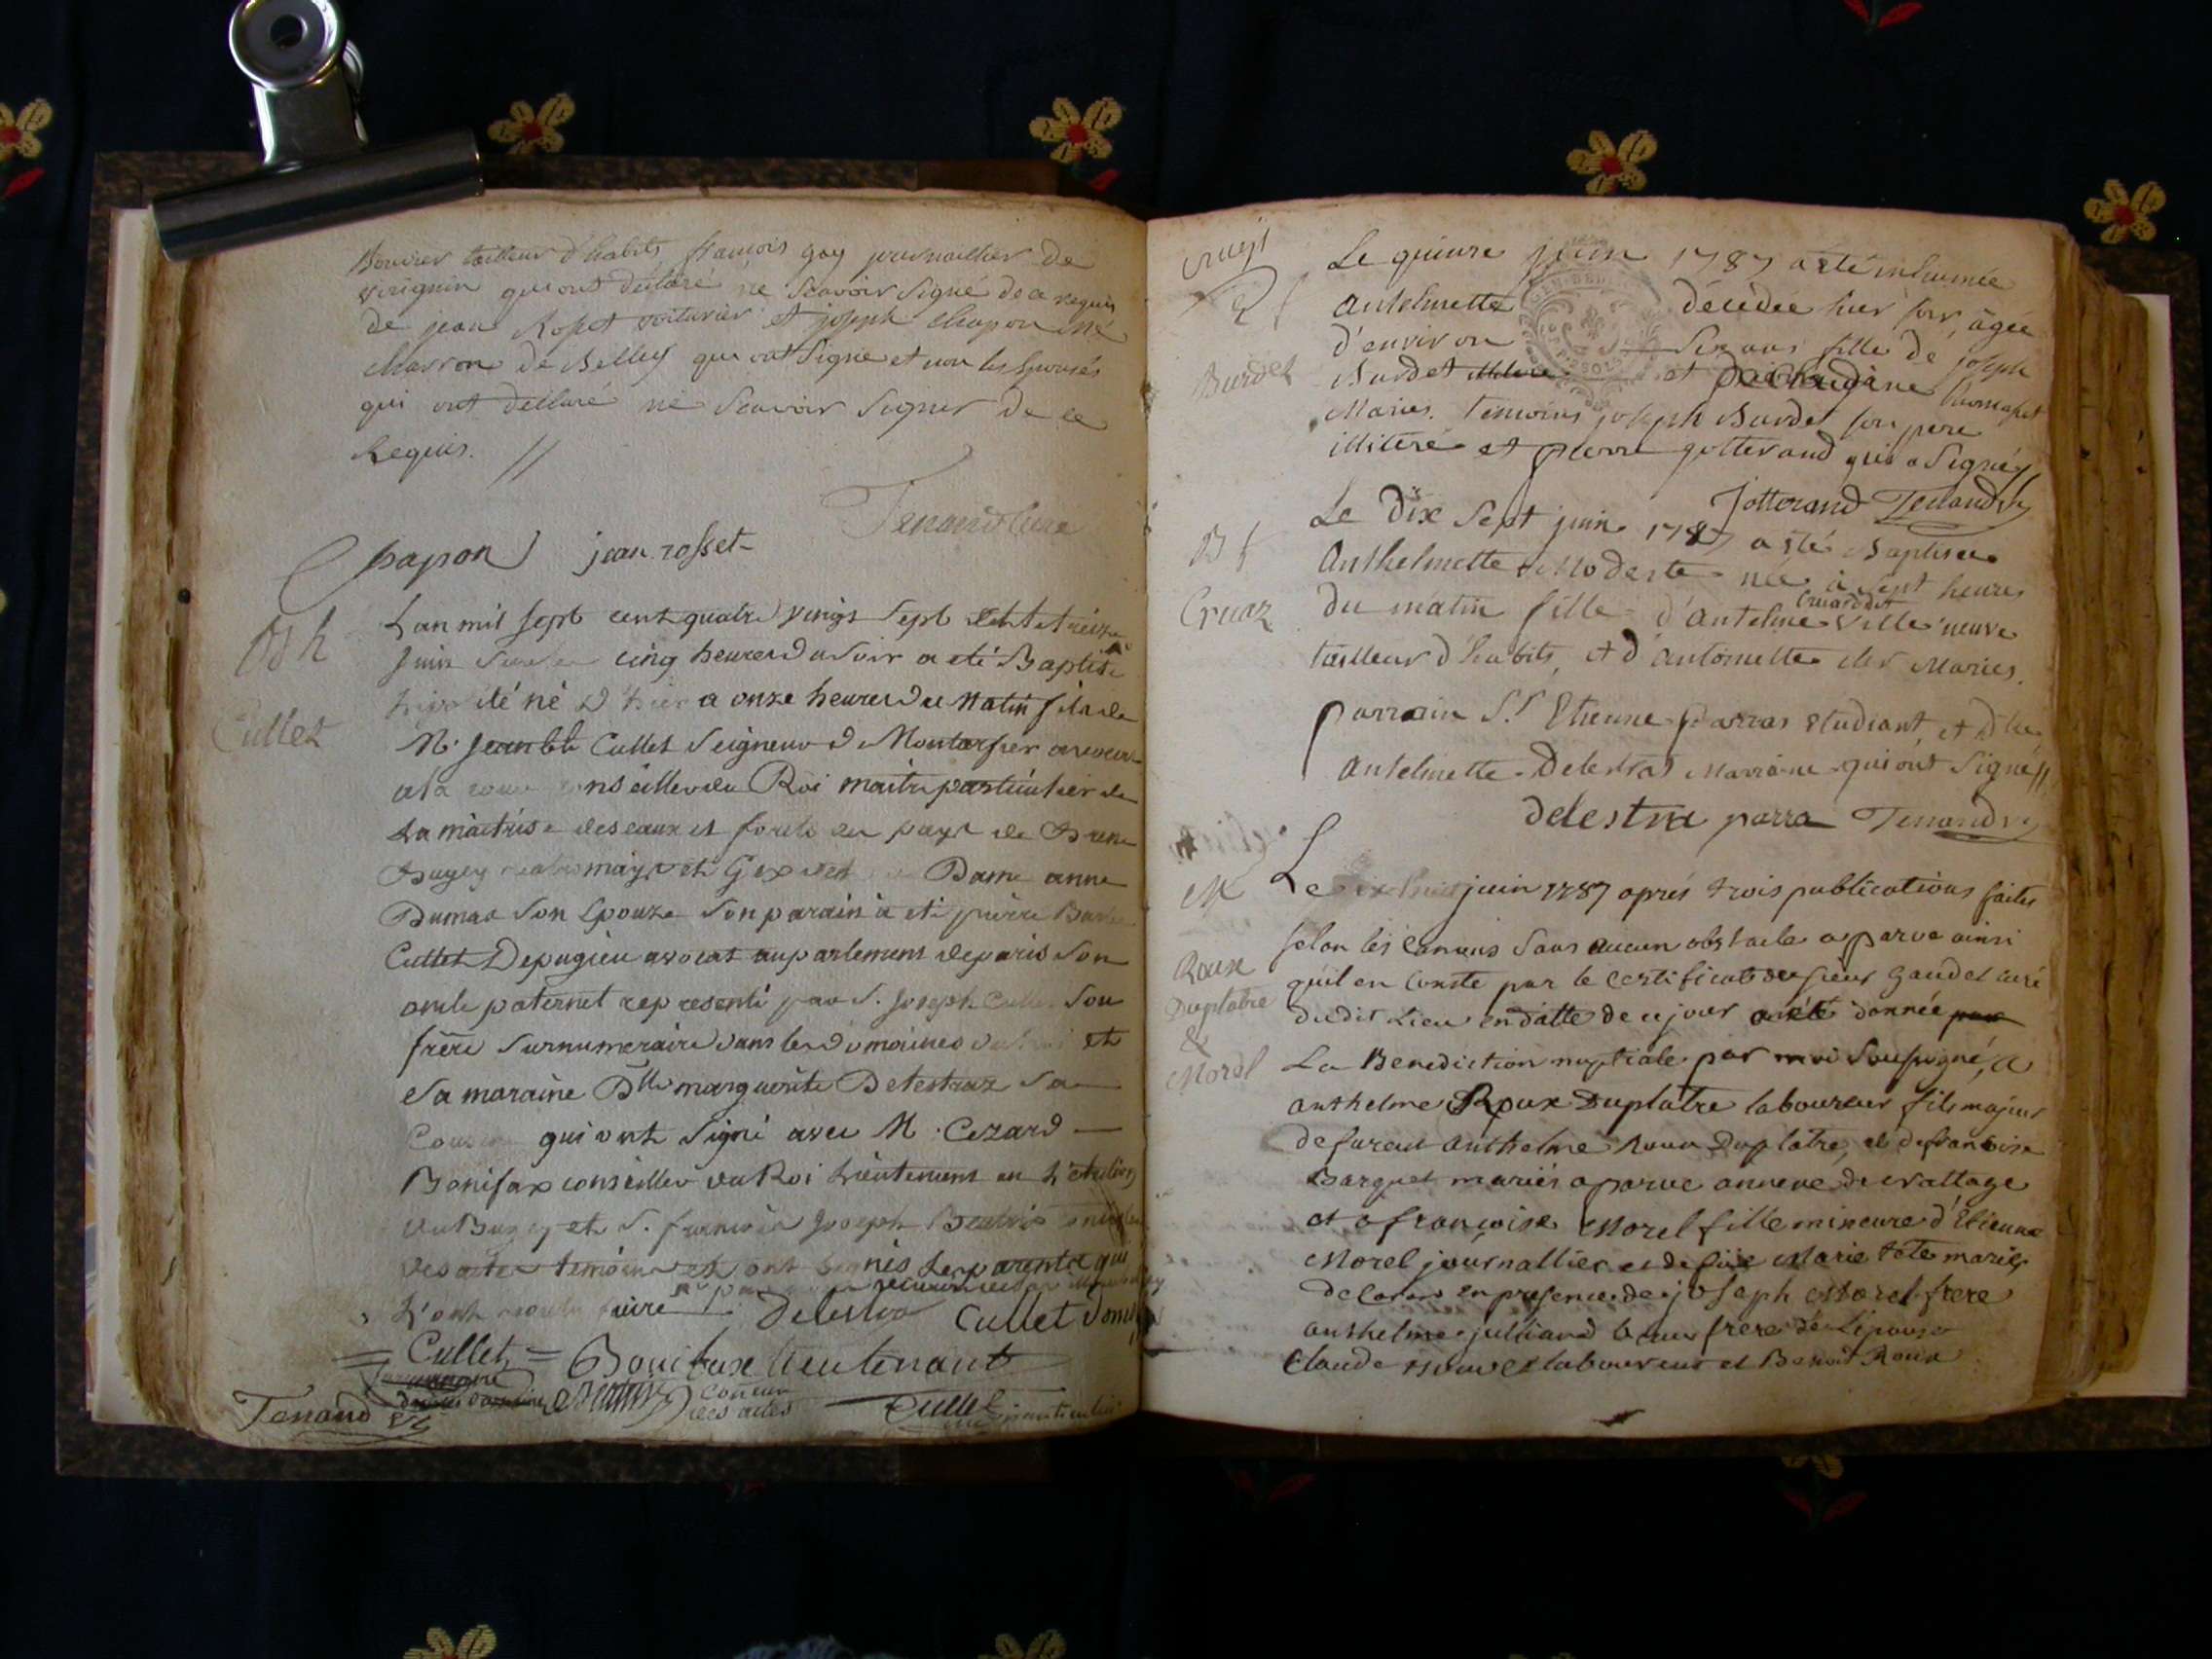 tailleur d'habits, françois gay journailler de
virignin qui ont déclaré ne Scavoir Signé de ce requis
de jean Roset voiturier et joseph Chapon mé
charron de Belley qui ont Signé et non les Epousés
qui ont déclaré ne Scavoir Signer de ce
Requis. //
Tenand Curé
Chapon jean rosset
B h
Cullet
L'an mil sept cent quatre vingt Sept et le treize
Juin cinq heures du Soir a eté Baptisé
né d'hier a onze heures du Matin fils de
M. Jean Cullet Seigneur de Montarfier avocat
a la cour conseiller du Roi maitre particulier de
La maitrise des eaux et forets du pays de Bresse
Bugey et Gex et de Dame anne
Dumas Son Epouze Son parain à eté pierre
Cullet Depugieu avocat au parlement de paris Son
oncle paternel representé par S. Joseph Cullet Son
frère Surnumeraire dans les domaines du Roi et
Sa maraine Dlle marguerite Delestraz Sa
Cousine qui ont Signé avec M. Cezard
Bonifax conseiller du Roi Lieutenent en L'election
du Bugey et S. françois Joseph
des actes temoins et ont Signés Les parents qui
L'ont
Delestra Cullet
= Cullet = Bonifax lieutenant
Tenand
des actes Cullet
particulier
Burdet
Le quinze juin 1787 a été inhumée
Antelmette décédée hier soir, âgée
d'environ Six ans fille de joseph
Burdet et de Claudine
Mariés. temoins joseph Burdet son pere
illiteré et pierre gotterand qui a Signé
Jotterand Tenand
B f
Cruaz
Le Dix Sept juin 1787 a eté Baptisée
Anthelmette Modeste née à Sept heures
Cruaz dit
du matin fille d'Antelme Ville neuve
tailleur d'habits, et d'antoinette Mariés.
parrain S.r Etienne Parras Etudiant, et Dlle
Antelmette Delestras Marraine qui ont Signé //
delestra parra Tenand
M
Roux
Duplatre
&
Morel
Le dix huit juin 1787 aprés trois publications faites
selon les canons Sans aucun obstacle a parve ainsi
qu'il en conste par le certificat du sieur gaudet curé
dudit Lieu en datte de ce jour a été donnée par
La Benediction nuptiale par moi Soussigné, a
anthelme Roux Duplatre laboureur fils majeur
de furent anthelme Roux Duplatre, et de françoise
Barquet mariés a parve annexe de vrattage
et a françoise Morel fille mineure d'Etienne
Morel journallier et de füe Marie tete mariés
en presence de joseph Morel frere
anthelme julliand beau frere de L'epouse
Claude laboureur et Benoit Roux